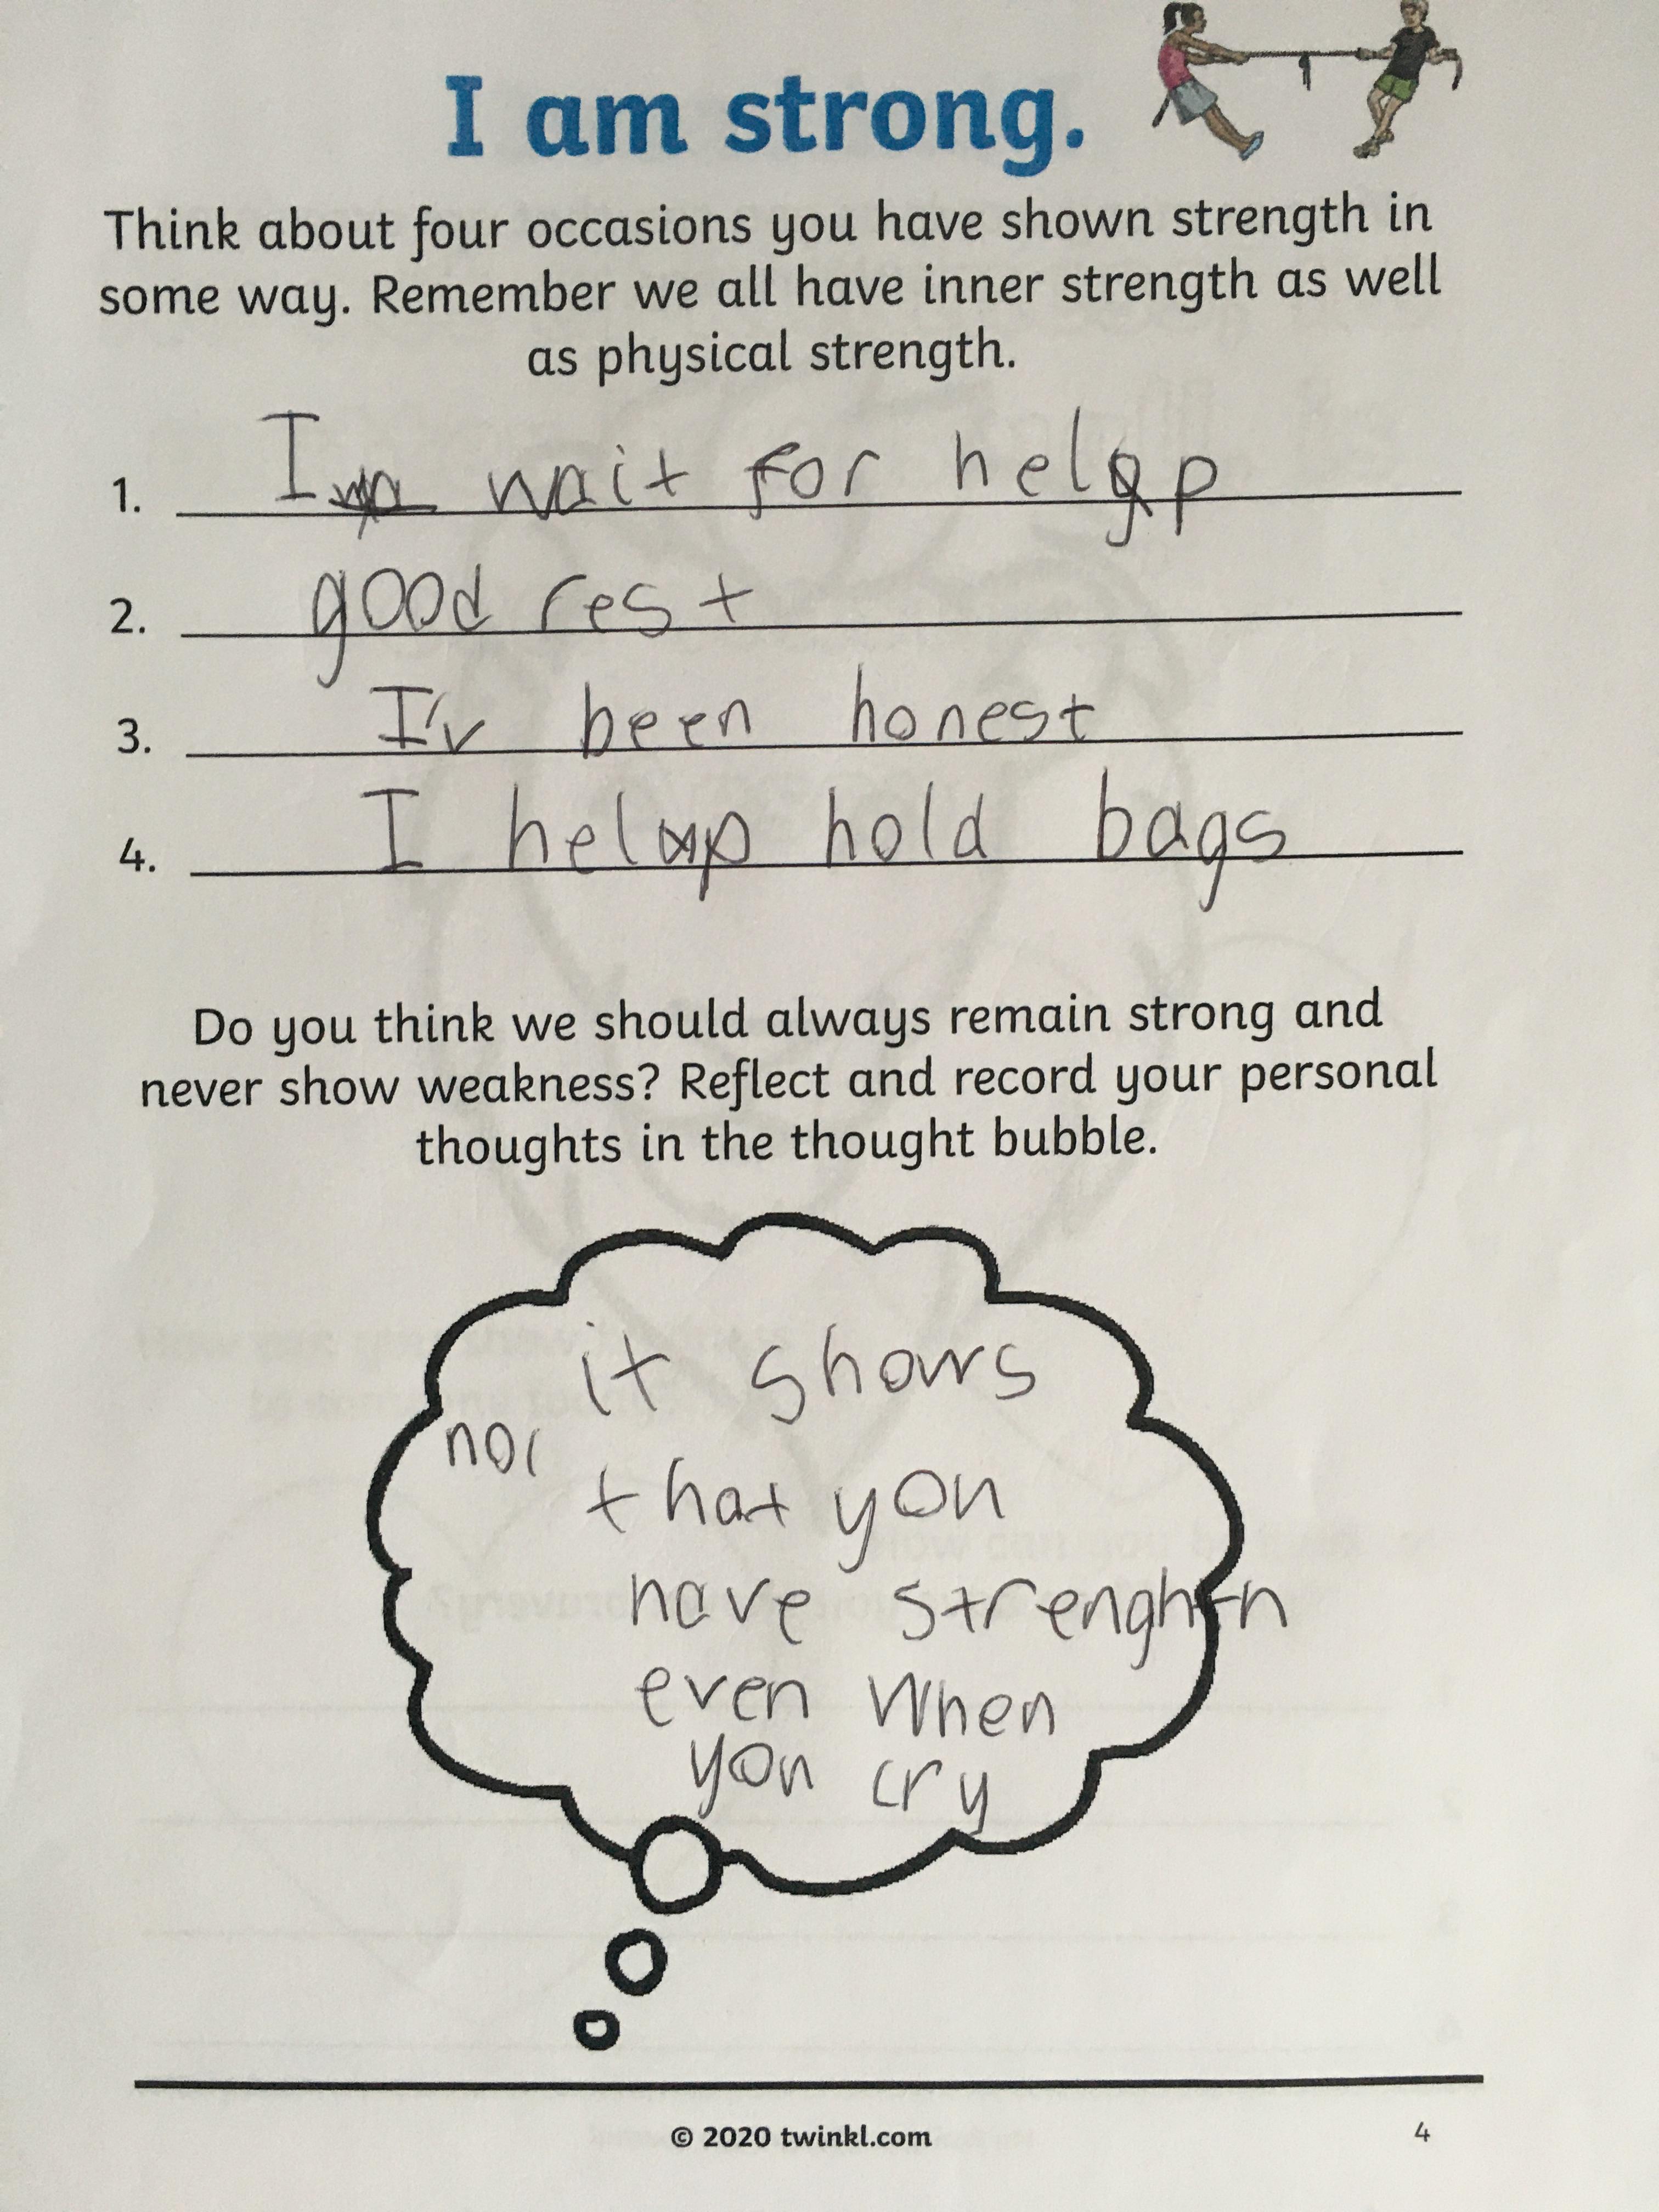 I am strong.
Think about four occasions you have shown strength in
some way. Remember we all have inner strength as well
as physical strength.
1. I wait for help
2. good rest
3. I'v been honest
4. I help hold bags
Do you think we should always remain strong and
never show weakness? Reflect and record your personal
thoughts in the thought bubble.
it shows
that you
have strenghtn
even when
you cry
© 2020 twinkl.com
4